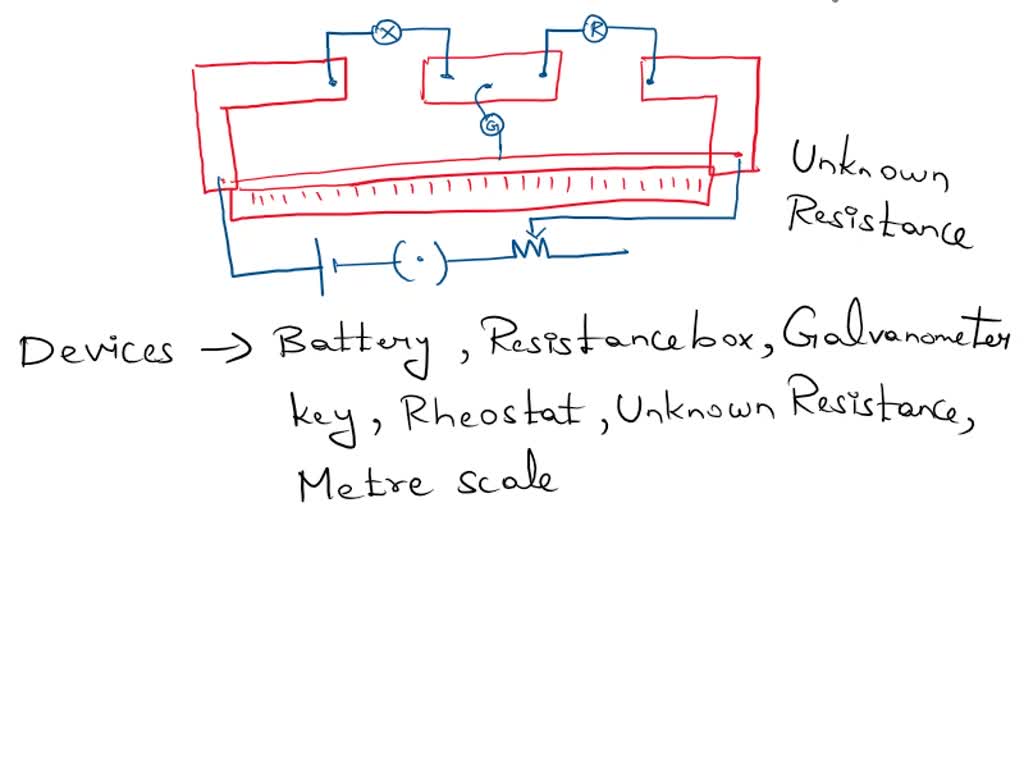 X R
G
Unknown
Resistance
Devices → Battery, Resistance box, Galvanometer
key, Rheostat, Unknown Resistance,
Metre scale